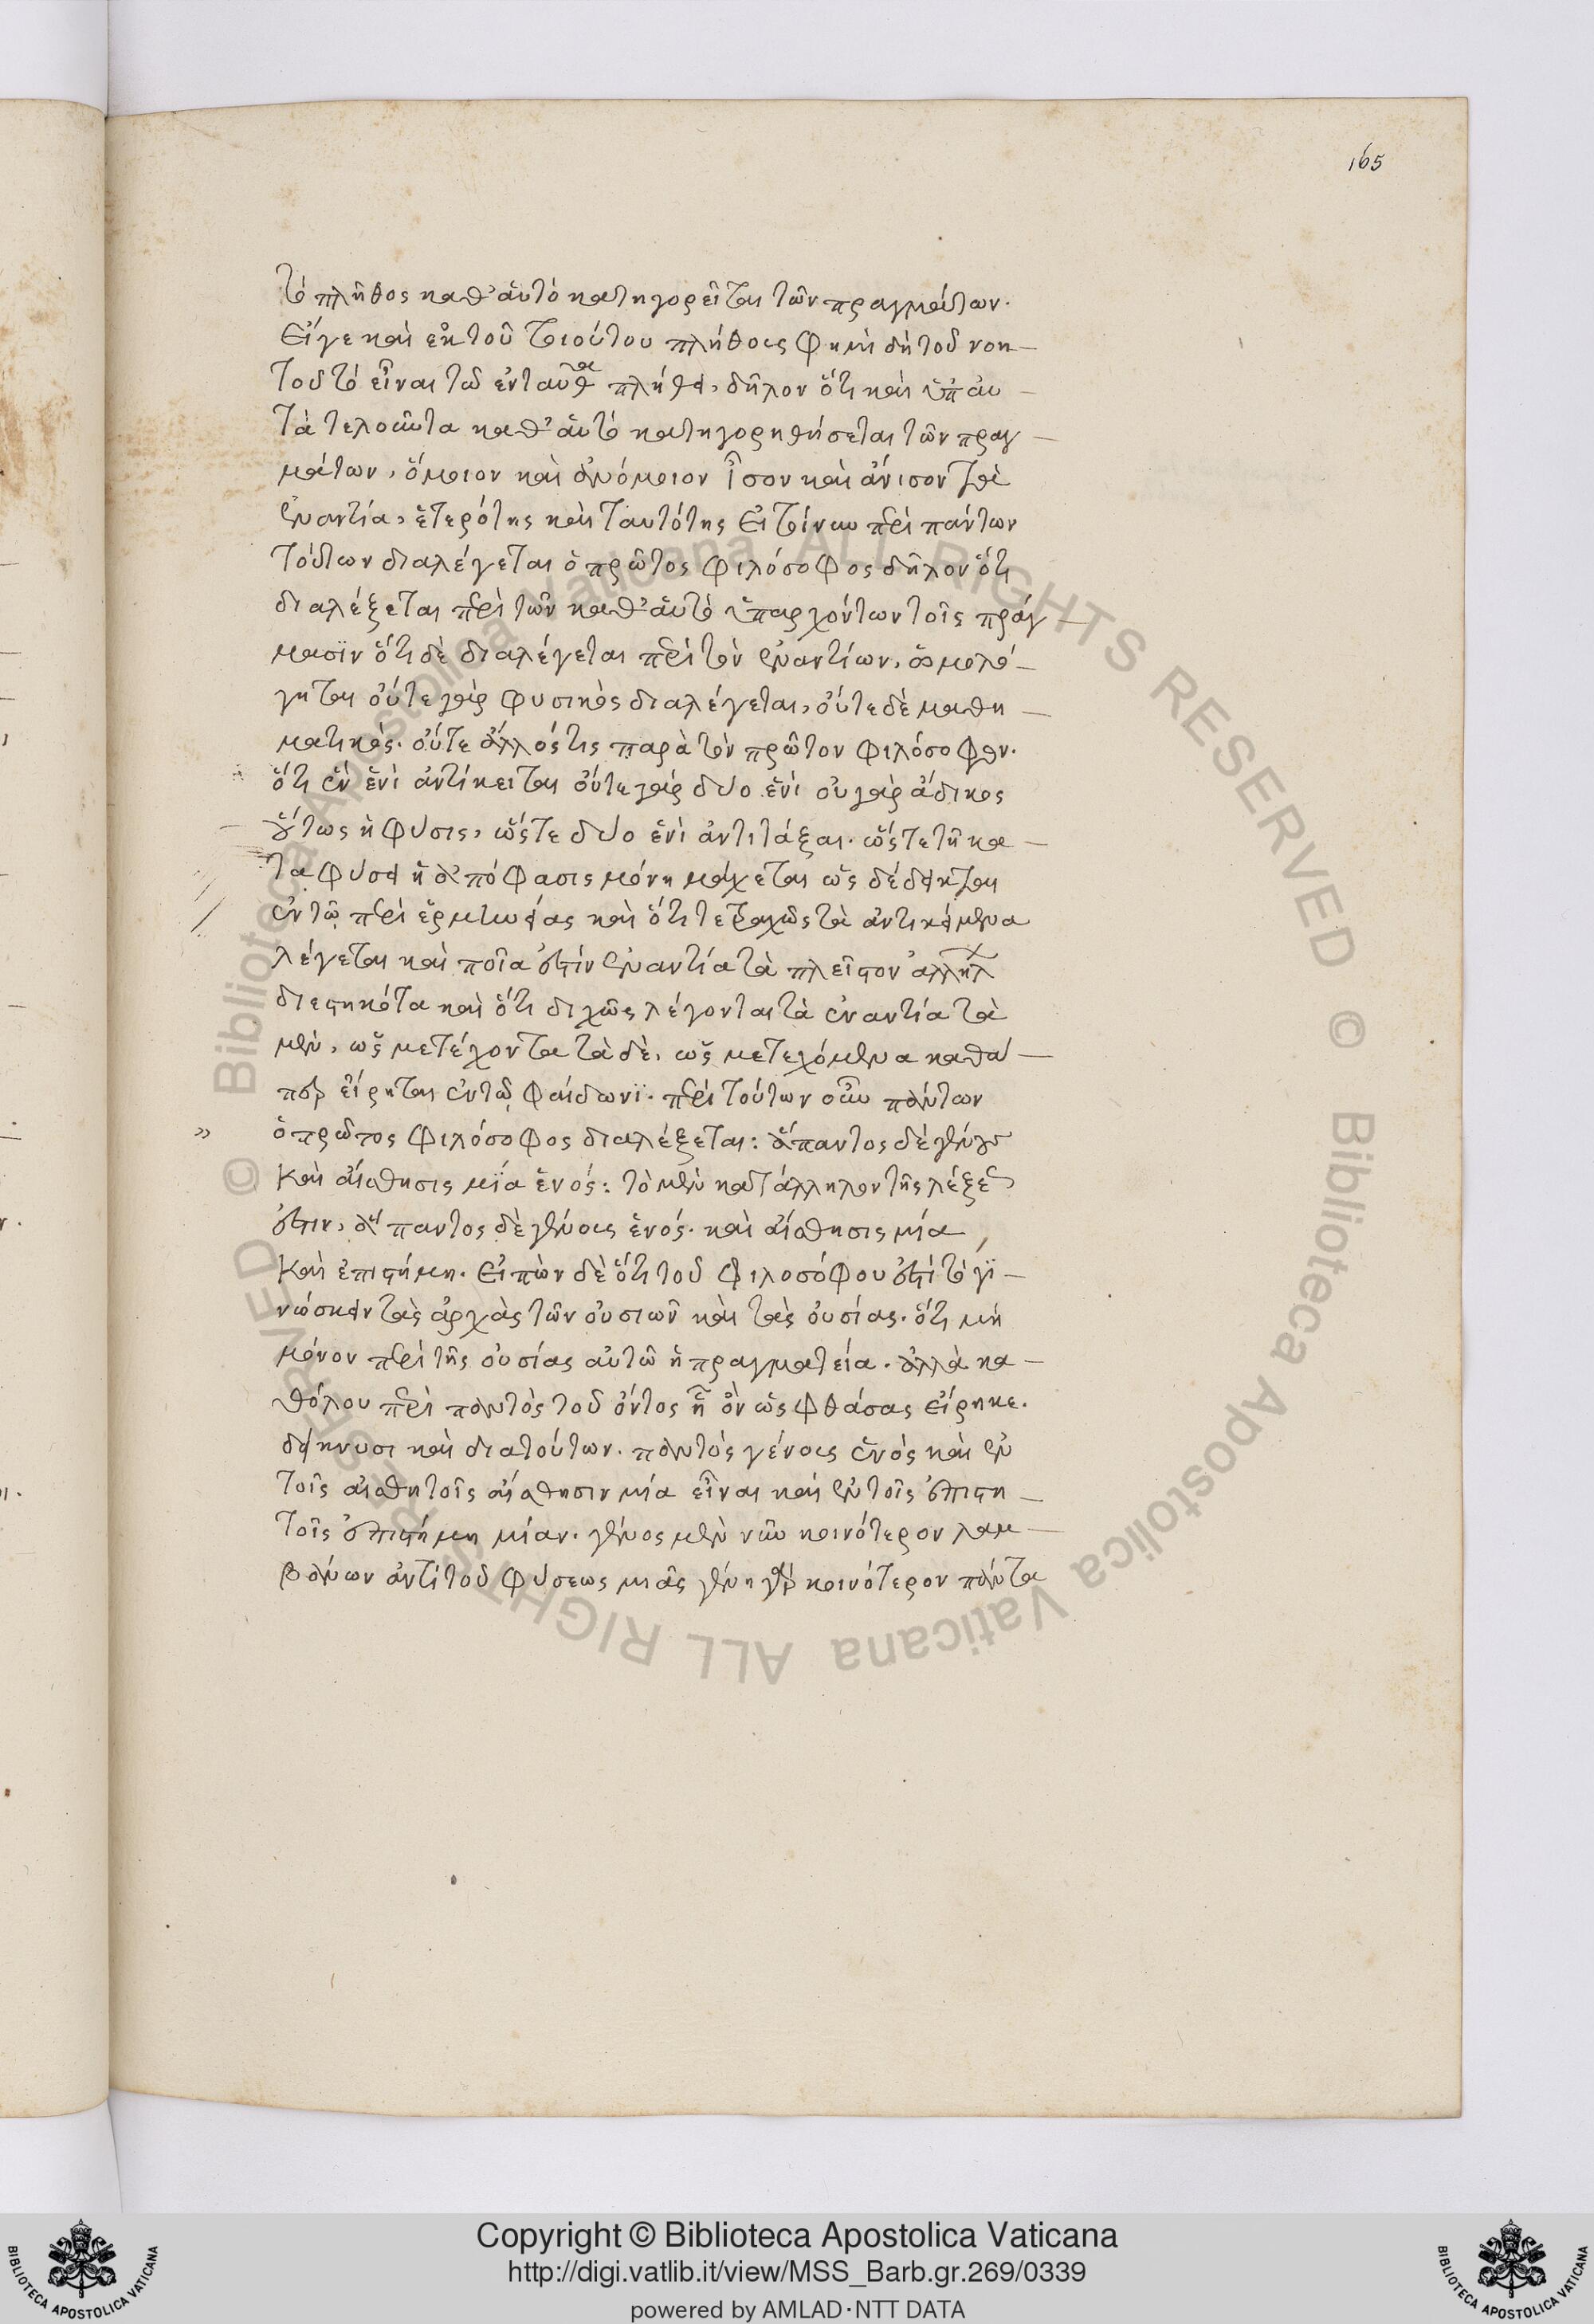 165
τὸ πλῆθος καθ' αὑτὸ κατηγορεῖται τῶν πραγμάτων.
Εἴγε καὶ ἐκ τοῦ τοιούτου πλήθους φημὶ δὴ τοῦ νοη-
τοῦ τὸ εἶναι τῶ ἐνταῦθα πλήθει, δῆλον ὅτι καὶ ὑπ' αυ-
τὰ τελοῦντα καθ' αὑτὸ κατηγορηθήσεται τῶν πραγ-
μάτων, ὅμοιον καὶ ἀνόμοιον ἴσον καὶ ἄνισον τὰ
ἐναντία, ἑτερότης καὶ ταυτότης Εἰ τοίνυν περὶ πάντων
τούτων διαλέγεται ὁ πρῶτος φιλόσοφος δῆλον ὅτι
διαλέξεται περὶ τῶν καθ' αὑτὸ ὑπαρχόντων τοῖς πράγ-
μασϊν ὅτι δὲ διαλέγεται περὶ τὸν ἐναντίων, ὡμολό-
γηται οὔτε γὰρ φυσικὸς διαλέγεται, οὔτε δὲ μαθη-
ματικὸς. οὔτε ἄλλός τις παρὰ τὸν πρῶτον φιλόσοφον.
ὅτι ἓν ἑνὶ ἀντίκειται οὔτε γὰρ δύο ἑνὶ οὐ γὰρ ἄδικος
οὕτως ἡ φύσις, ὥστε δύο ἑνὶ ἀντιτάξαι. ὥστε τῆ κα-
τα φύσει ἡ ἀπόφασις μόνη μάχεται ὡς δέδεικται
ἐν τῷ περὶ ἑρμηνείας καὶ ὅτι τετραχῶς τὰ ἀντικείμενα
λέγεται καὶ ποῖα ἐστὶν ἐναντία τὰ πλεῖστον ἀλλήλ
διεστηκότα καὶ ὅτι διχῶς λέγονται τὰ ἐναντία τὰ
μὲν, ὡς μετέχοντα τὰ δὲ, ὡς μετεχόμενα καθά-
περ εἴρηται ἐν τῷ Φαίδωνϊ. περὶ τούτων οὖν πάντων
» ὁ πρῶτος φιλόσοφος διαλέξεται: ἅπαντος δὲ γένους
Καὶ αἴσθησις μϊά ἑνός: τὸ μὲν κατάλληλον τῆς λέξεώς
ἐστιν, ἅπαντος δὲ γένους ἑνός. καὶ αἴσθησις μία
Καὶ ἐπιστήμη. Εἰπὼν δὲ ὅτι τοῦ φιλοσόφου ἐστὶ τὸ γϊ-
νώσκειν τὰς ἀρχὰς τῶν οὐσιῶν καὶ τὰς οὐσίας. ὅτι μὴ
μόνον περὶ τῆς οὐσίας αὐτῶ ἡ πραγματεία. ἀλλὰ κα-
θόλου περὶ παντὸς τοῦ ὄντος ἧ ὂν ὡς φθάσας εἴρηκε.
δείκνυσι καὶ διατούτων. παντὸς γένους ἑνός καὶ ἐν
τοῖς αἰσθητοῖς αἴσθησιν μία εἶναι καὶ ἐν τοῖς ἐπιστη-
τοῖς ἐπιστήμη μίαν. γένος μὲν νῦν κοινότερον λαμ-
βάνων ἀντὶ τοῦ φύσεως μιᾶς γένη γὰρ κοινότερον πάντα
Copyright © Biblioteca Apostolica Vaticana
http://digi.vatlib.it/view/MSS_Barb.gr.269/0339
powered by AMLAD·NTT DATA